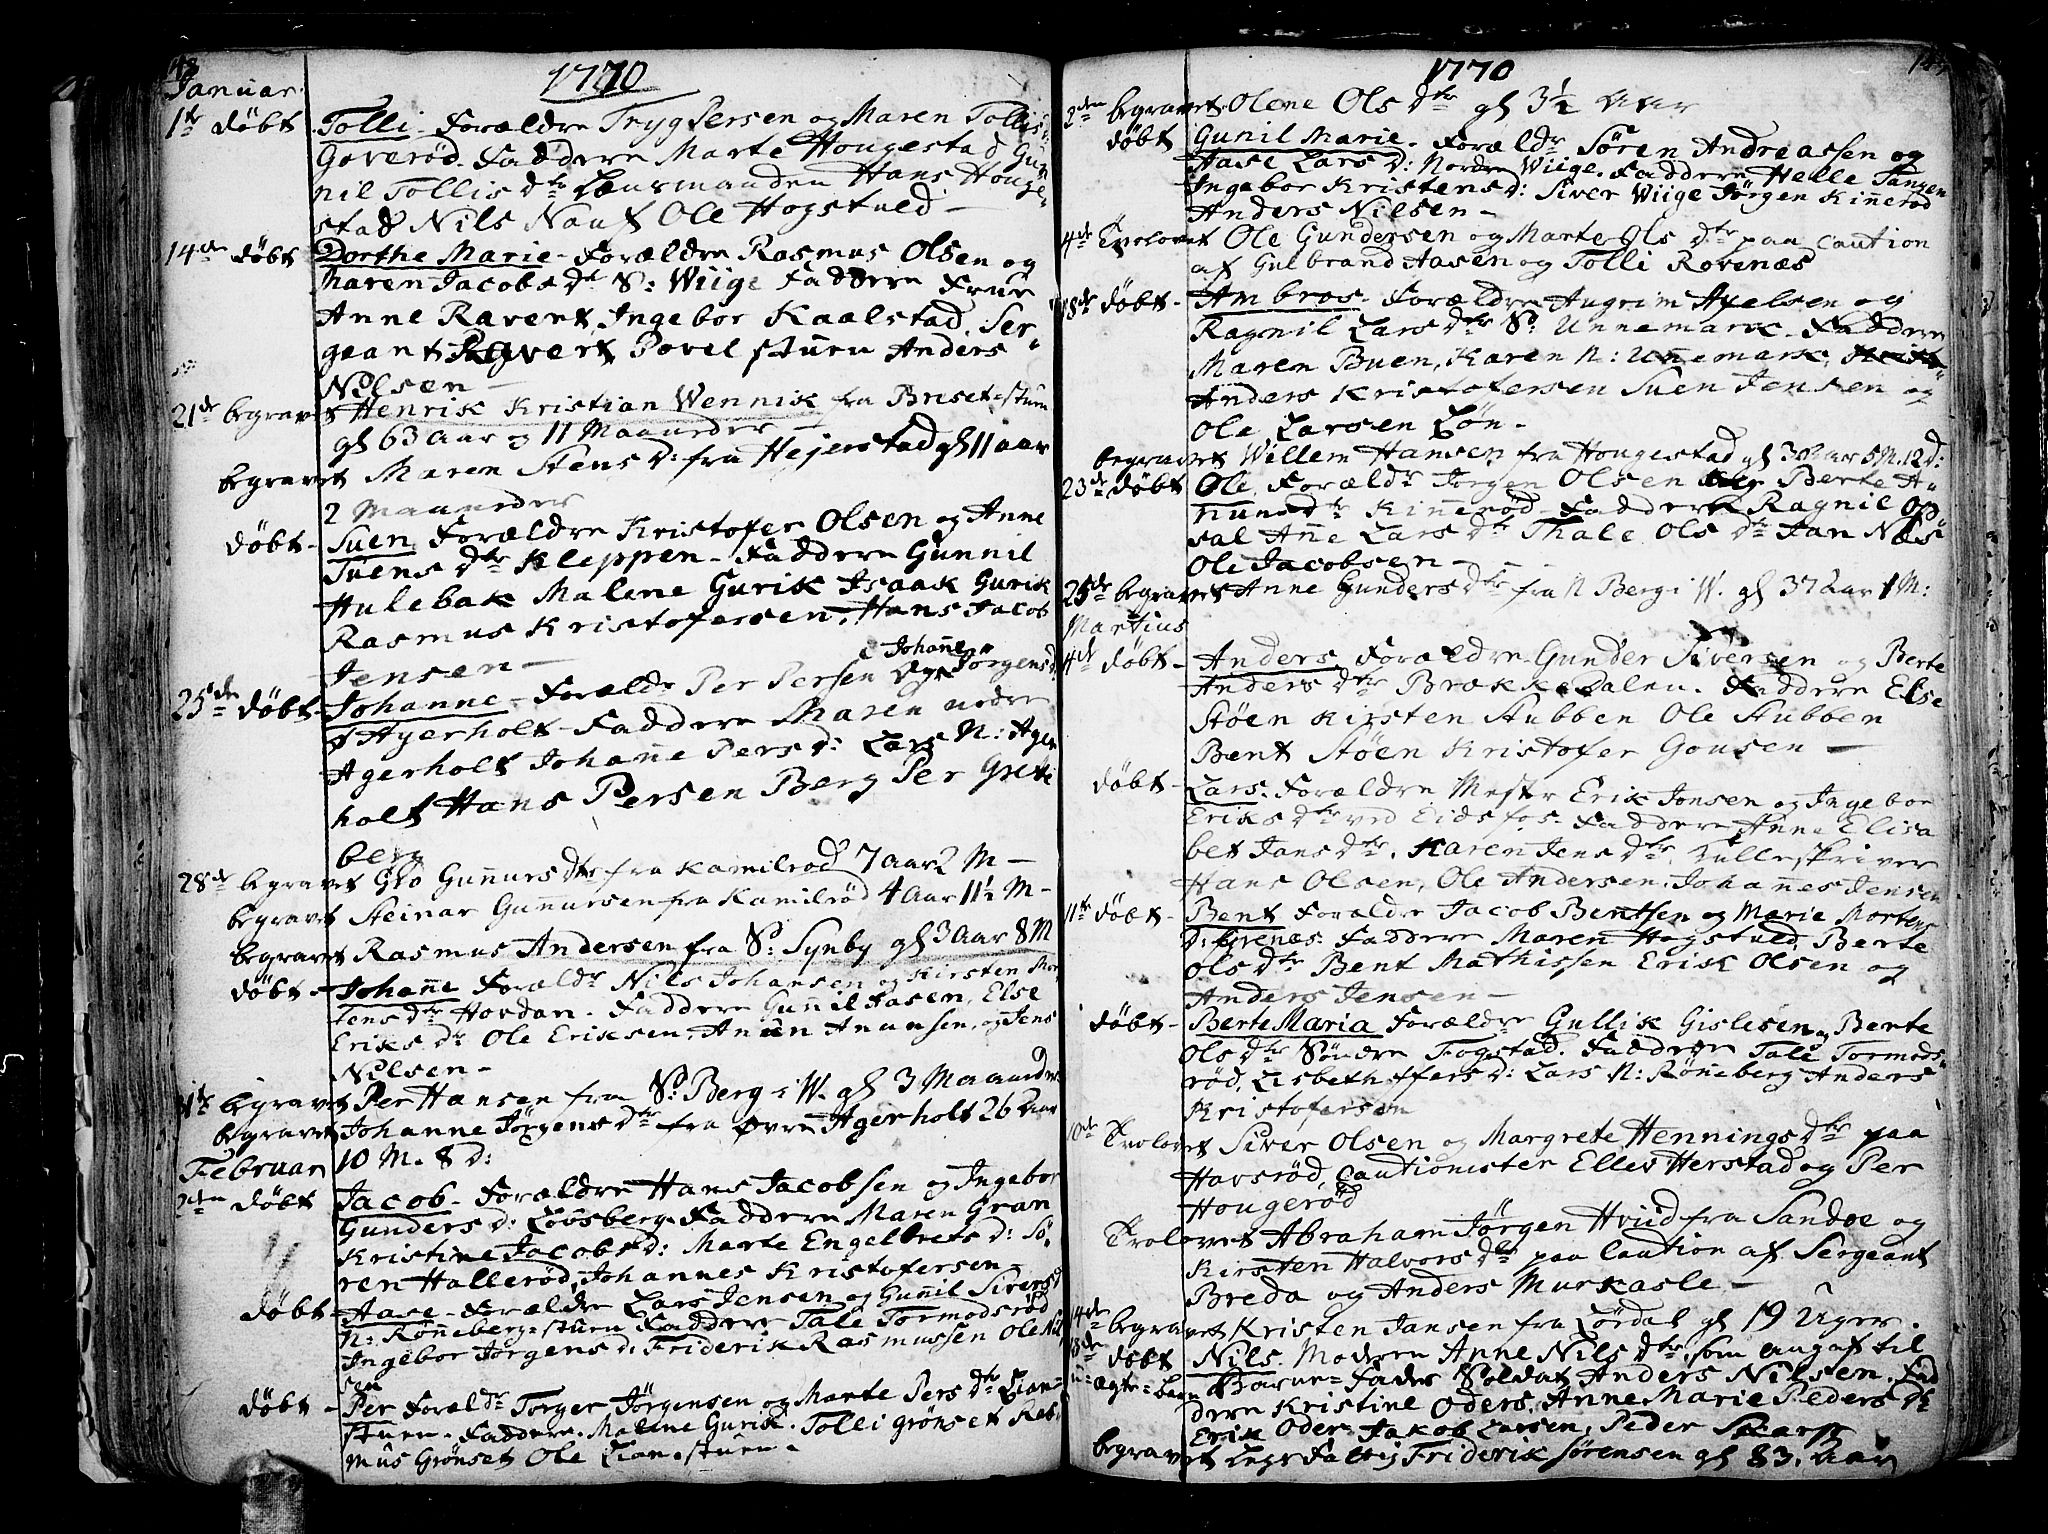 148
1770
Januar
1te døbt Tolli. Forældre Tryg Persen og Maren Tollis
Goverød. Faddere Marte Hougestad Gun
nil Tollis Dtr Lænsmanden Hans Houge-
stad Nils Nauf Ole Hogstuld —
14de døbt Dorthe Marie. Forældre Rasmus Olsen og
Maren Jacobs Dtr S: Wiige Faddere Frue
Anne Ravert, Ingebor Kaalstad, Ser-
geant Ravert Povel stuen Anders
Nilsen —
21de begravet Henrik Kristian Wennik fra Briset-stuen
gl 63 aar og 11 Maaneder —
begravet Maren Stens D: fra Hejerstad gl 11 aar
2 Maaneder
døbt - Suen Forældre Kristofer Olsen og Anne
Suens Dtr Kleppen. Faddere Gunnil
Hulebak Malene Gurik Isaak Gurik
Rasmus Kristofersen, Hans Jacob
Jensen —
Johañe
25de døbt - Johanne. Foreldr Per Persen og Jørgensd
Agerholt. Faddere Maren nedre
Agerholt Johañe Pers D: Lars N: Ager
holt Hans Persen Berg Per Greti
berg
28de begravet Gro Guñurs Dtr fra Kamilrød 7 aar 2 M —
begravet Steinar Guñursen fra Kamilrød 4 Aar 11½ M -
begravet Rasmus Andersen fra S: Synby gl 3 Aar 8 M
døbt - Johañe Forældr Nils Johansen og Kirsten Mor
tens Dtr Hovdan. Faddere Guñil Aasen, Else
Eriks Dr Ole Eriksen, Anun Anunsen, og Jens
Nilsen —
begravet Per Hansen fra S: Berg i W. gl 3 Maaneder
begravet Johanne Jørgens Dtr fra øvre Agerholt 26 Aar
Februar 10 M. 8 D:
2den døbt Jacob. Forældre Hans Jacobsen og Ingebor
Gunders D: Lovsberg. Faddere Maren Gran
Kristine Jacobs D: Marte Engelbrets D: Sö-
ren Hallerød, Johannes Kristofersen —
døbt - Aase. Forældre Lars Jensen og Guñil Sivers D
N: Røñeberg-stuen Faddere Tale Tormodsrød
Ingebor Jørgens D. Friderik Rasmussen Ole Nil
sen
døbt - Per Forældr Torger Jørgensen og Marte Pers Dtr Lian-
stuen. Faddere. Malene Gurik. Tolli Grönset Ras
mus Grønset Ole Lian-stuen.
1770
2den begravet Olene Ols Dtr gl 3½ Aar
døbt Gunil Marie. Forældr Søren Andreassen og
Aase Lars D: Nordre Wiige. Faddere Helle Tangen
Ingebor Kristens D: Siver Wiige Jørgen Kiñerød
Anders Nilsen —
4de Trolovet Ole Gundersen og Marte Ols Dtr paa Caution
af Gulbrand Aasen og Tolli Rovenæs
18de døbt - Ambros. Forældre Angrim Axelsen og
Ragnil Lars Dtr S: Unnemark. Faddere
Maren Buen, Karen N: Uñemark,
Anders Kristofersen Suen Jensen og
Ole Larsen Løn —
begravet Willem Hansen fra Hougestad gl 30 Aar 5 M. 12 D:
23de døbt Ole Forældr Jørgen Olsen Berte A-
nuns Dtr Kiñerød. Faddere Ragnil Op
sal Añe Lars Dtr Thale Ols Dtr Jan Næs
Ole Jacobsen —
25de begravet Anne Gunders Dtr fra N Berg i W. gl 37 Aar 1 M:
Martius
4de døbt - Anders Forældre Gunder Siversen og Berte
Anders Dtr Brekke Dalen. Faddere Else
Støen Kirsten Stubben Ole Stubben
Bent Støen Kristofer Gousen —
døbt - Lars. Forældre Mester Erik Jonsen og Ingebor
Eriks Dtr ved Eidsfos. Faddere Anne Elisa
bet Jans Dtr. Karen Jens Dtr, Hulleskriver
Hans Olsen, Ole Andersen, Johañes Jensen
11te døbt - Bent Forældre Jacob Bentsen og Marie Mortens
D: Grenæs. Faddere Maren Hogstuld, Berte
Ols Dtr Bent Mathissen Erik Olsen og
Anders Jensen —
døbt - Berte Maria Forældre Gullik Gislesen og Berte
Ols Dtr Søndre Fogstad. Faddere Tale Tormods-
rød, Lisbeth Iffers D: Lars N: Røñeberg Anders
Kristofersen
Trolovet Siver Olsen og Margrete Hennings Dtr paa
Havsrød, Cautionister Elles Herstad og Per
Hougerød
Trolovet Abraham Jørgen Hviid fra Sandøe og
Kirsten Halvors Dtr paa Caution af Sergeant
Breda og Anders Murkasle —
14de begravet Kristen Jansen fra Lørdal gl 19 Uger.
18de døbt Nils. Modere Anne Nils Dtr, som angaf til
u-ægte-barn Barne-Fader Soldat Anders Nilsen. Fad
dere Kristine Oders, Anne Marie Peders D:
Erik Oder Jakob Larsen, Peder Skarp
begravet Legs Fattig Friderik Sørensen gl 83. Aar